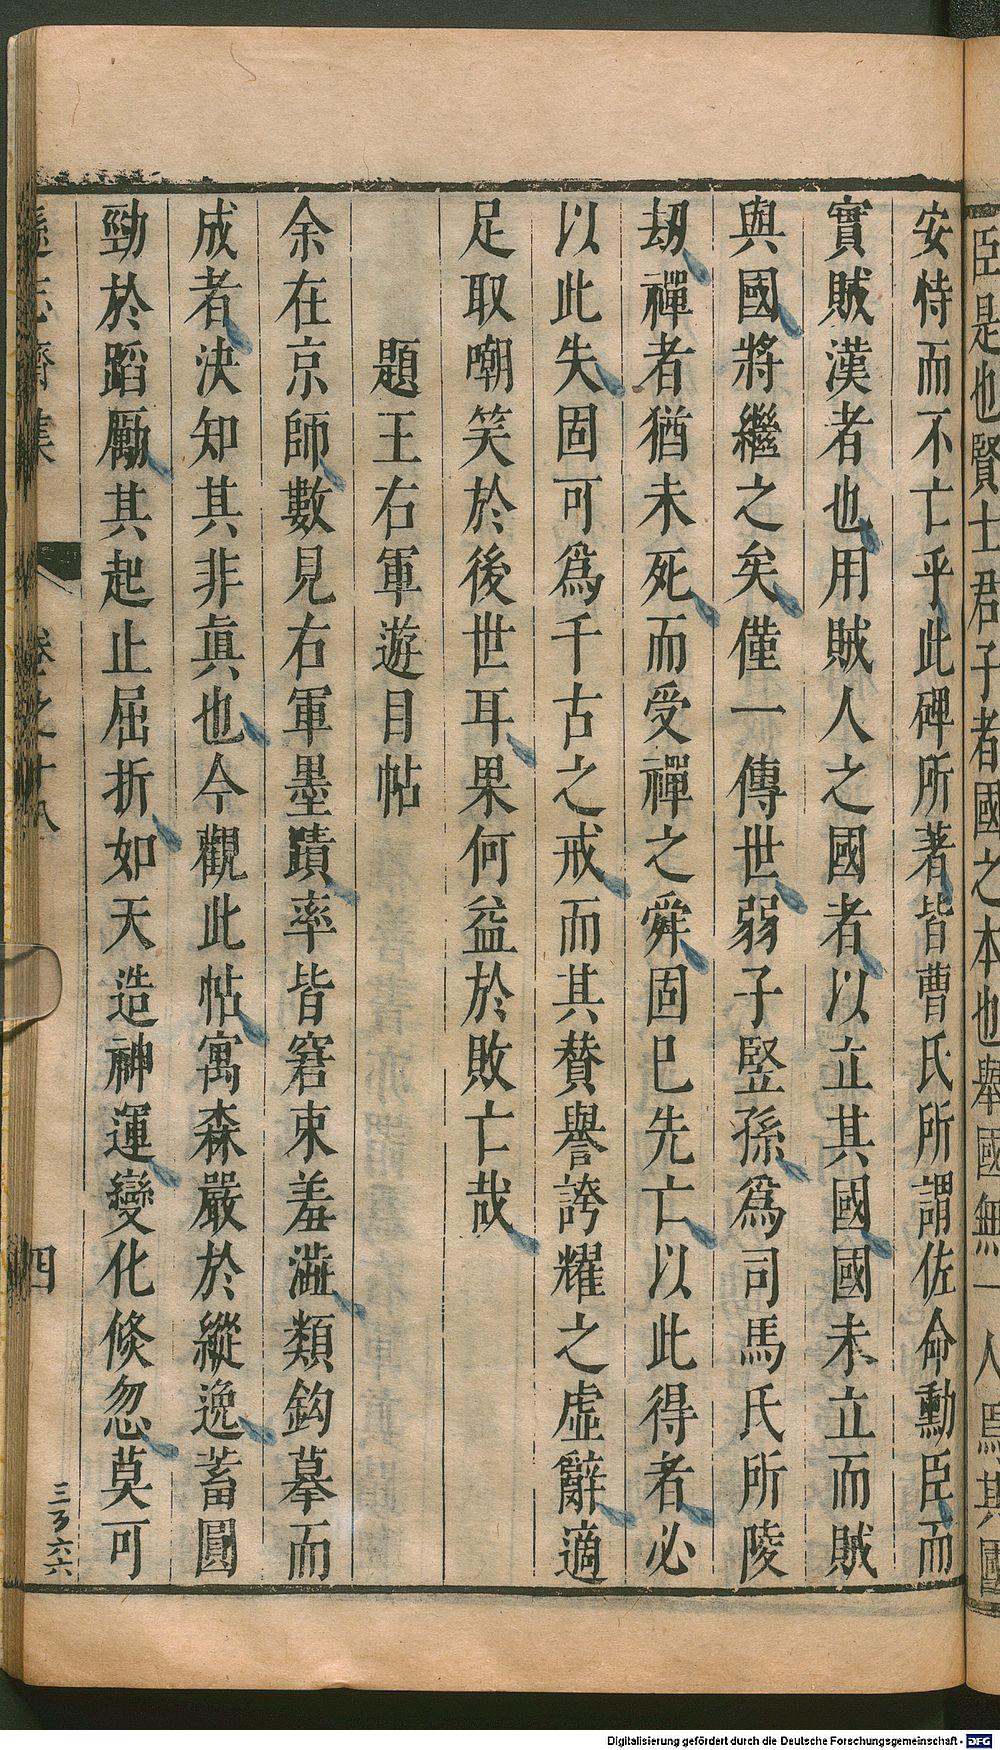 臣是也賢士君子者國之本也舉國無一人爲其國
安恃而不亡乎此碑所著皆曹氏所謂佐命勳臣而
實賊漢者也用賊人之國者以立其國國未立而賊
與國將繼之矣僅一傳世弱子竪孫爲司馬氏所陵
刼禪者猶未死而受禪之舜固巳先亡以此得者必
以此失固可爲千古之戒而其賛譽誇耀之虛辭適
足取嘲笑於後世耳果何益於敗亡哉
題王右軍遊目帖
余在京師數見右軍墨蹟率皆窘束羞澁類鈎摹而
成者決知其非眞也今觀此帖寓森嚴於縱逸蓄圓
勁於蹈厲其起止屈折如天造神運變化倐忽莫可
遜志齋集
卷之十八
四
三丂六六
Digitalisierung gefördert durch die Deutsche Forschungsgemeinschaft - DFG